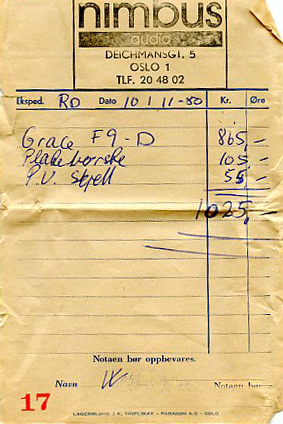 nimbus
audio
DEICHMANSGT. 5
OSLO 1
TLF. 20 48 02
Eksped. RO Dato 10 / 11-80 Kr. Øre
Grace F9-D 865,-
Platebørste 105,-
P.U. Skjell 55,-
1025,-
Notaen bør oppbevares.
Navn Notaen bør
17
LAGERBLOKK J K, TRIPLIKAT - PARAGON A.S - OSLO